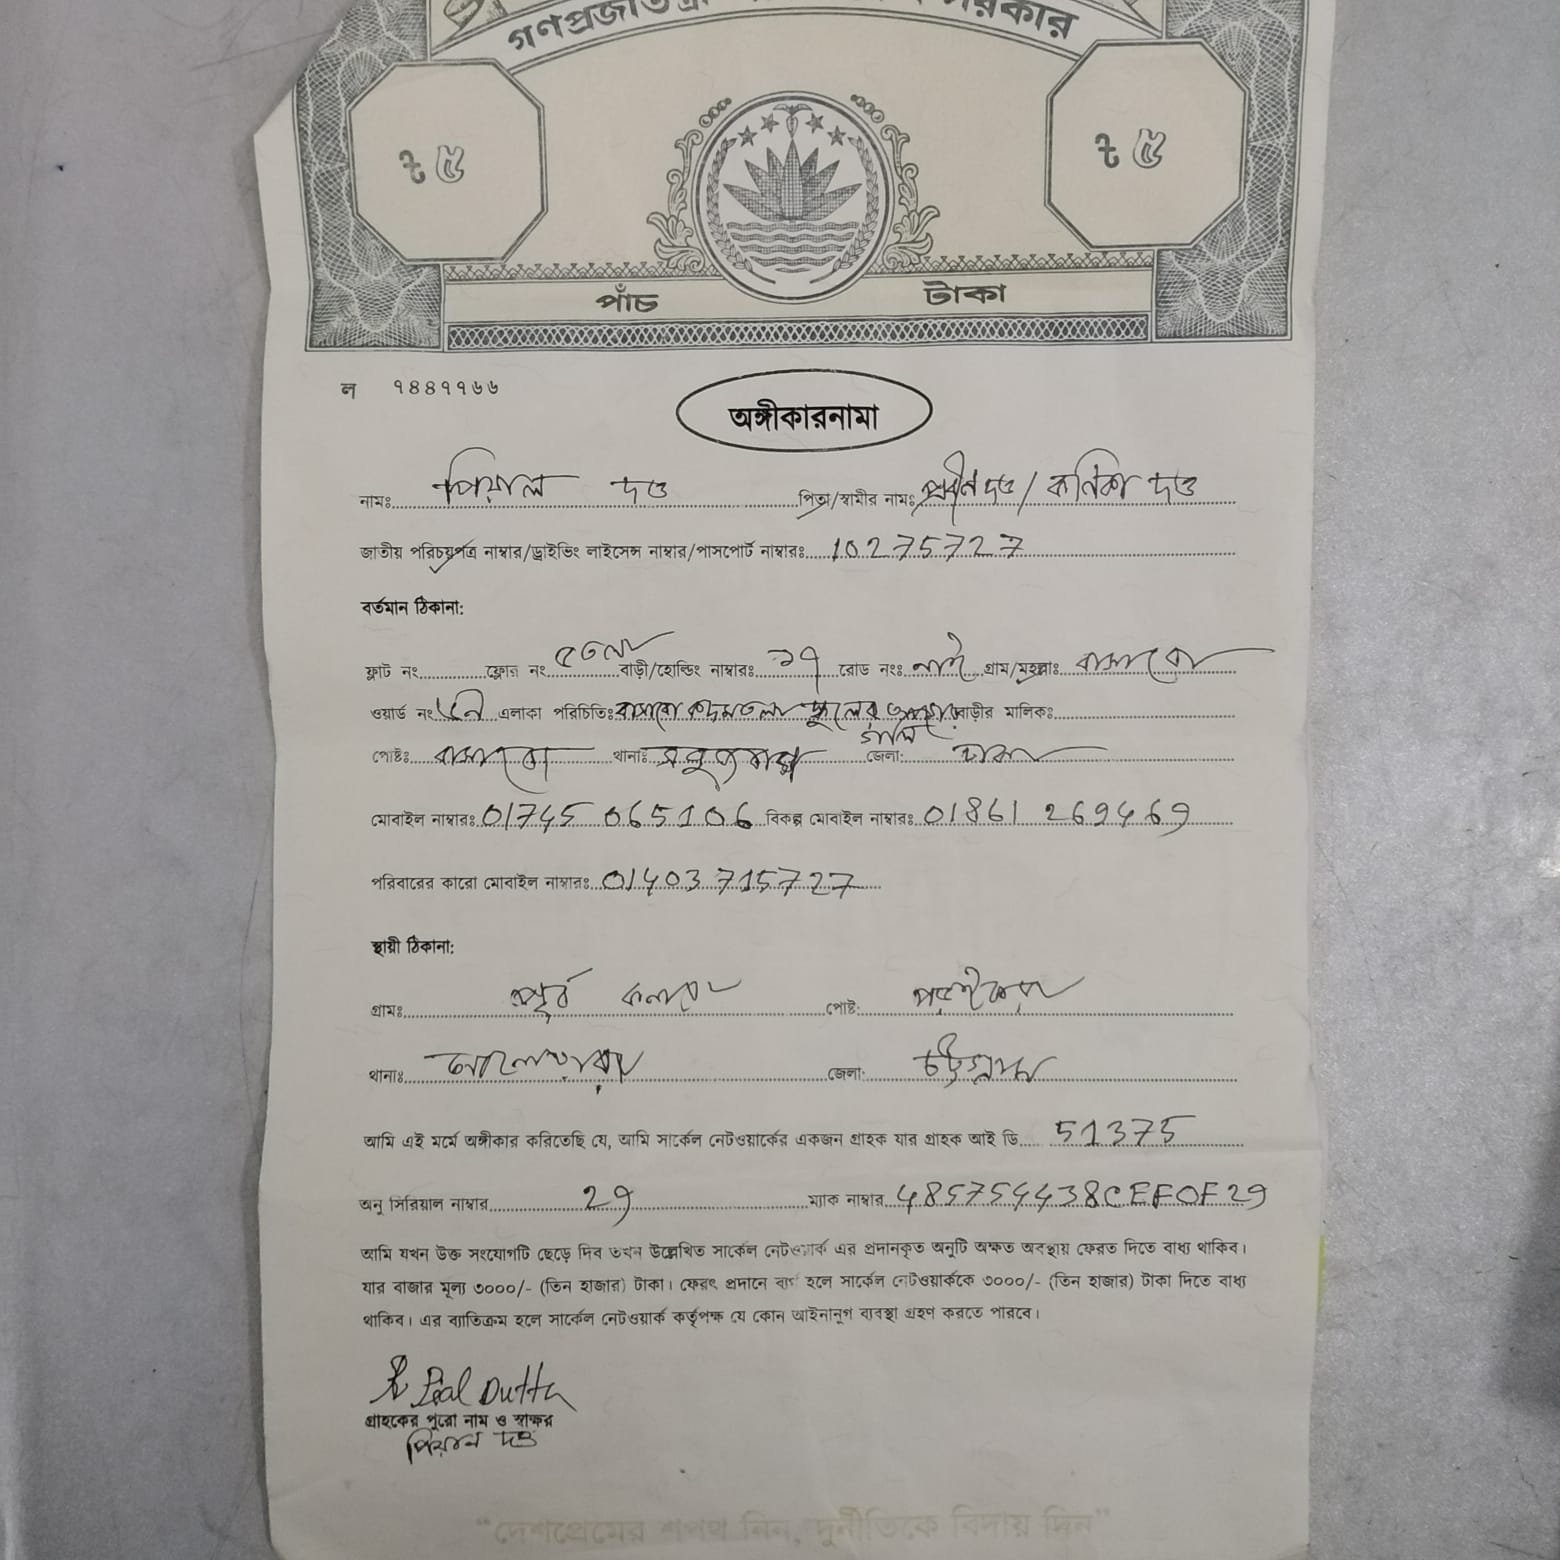 ৳ ৫ ৳ ৫
পাঁচ টাকা
ল ৭৪৪৭৭৬৬
অঙ্গীকারনামা
নামঃ পিয়াল দত্ত পিতা/স্বামীর নামঃ প্রবীন দত্ত / কনিকা দত্ত
জাতীয় পরিচয়পত্র নাম্বার/ড্রাইভিং লাইসেন্স নাম্বার/পাসপোর্ট নাম্বারঃ 10275727
বর্তমান ঠিকানা:
ফ্লাট নং ফ্লোর নং ৫তলা বাড়ী/হোল্ডিং নাম্বারঃ ১৭ রোড নংঃ নাই গ্রাম/মহল্লাঃ বাসাবো
ওয়ার্ড নং এলাকা পরিচিতিঃ বাসাবো কদমতলা স্কুলের বাড়ীর মালিকঃ
গলি
পোষ্টঃ বাসাবো থানাঃ সবুজবাগ জেলা: ঢাকা
মোবাইল নাম্বারঃ 01745 065106 বিকল্প মোবাইল নাম্বারঃ 01861 269469
পরিবারের কারো মোবাইল নাম্বারঃ 01403 715727
স্থায়ী ঠিকানা:
গ্রামঃ পূর্ব পোষ্ট:
থানাঃ আনোয়ারা জেলা: চট্টগ্রাম
আমি এই মর্মে অঙ্গীকার করিতেছি যে, আমি সার্কেল নেটওয়ার্কের একজন গ্রাহক যার গ্রাহক আই ডি 51375
অনু সিরিয়াল নাম্বার 29 ম্যাক নাম্বার 485754438CEF0F29
আমি যখন উক্ত সংযোগটি ছেড়ে দিব তখন উল্লেখিত সার্কেল নেটওয়ার্ক এর প্রদানকৃত অনুটি অক্ষত অবস্থায় ফেরত দিতে বাধ্য থাকিব।
যার বাজার মূল্য ৩০০০/- (তিন হাজার) টাকা। ফেরৎ প্রদানে ব্যর্থ হলে সার্কেল নেটওয়ার্ককে ৩০০০/- (তিন হাজার) টাকা দিতে বাধ্য
থাকিব। এর ব্যাতিক্রম হলে সার্কেল নেটওয়ার্ক কর্তৃপক্ষ যে কোন আইনানুগ ব্যবস্থা গ্রহণ করতে পারবে।
Pial Dutta
গ্রাহকের পুরো নাম ও স্বাক্ষর
পিয়াল দত্ত
“দেশপ্রেমের শপথ নিন, দুর্নীতিকে বিদায় দিন”